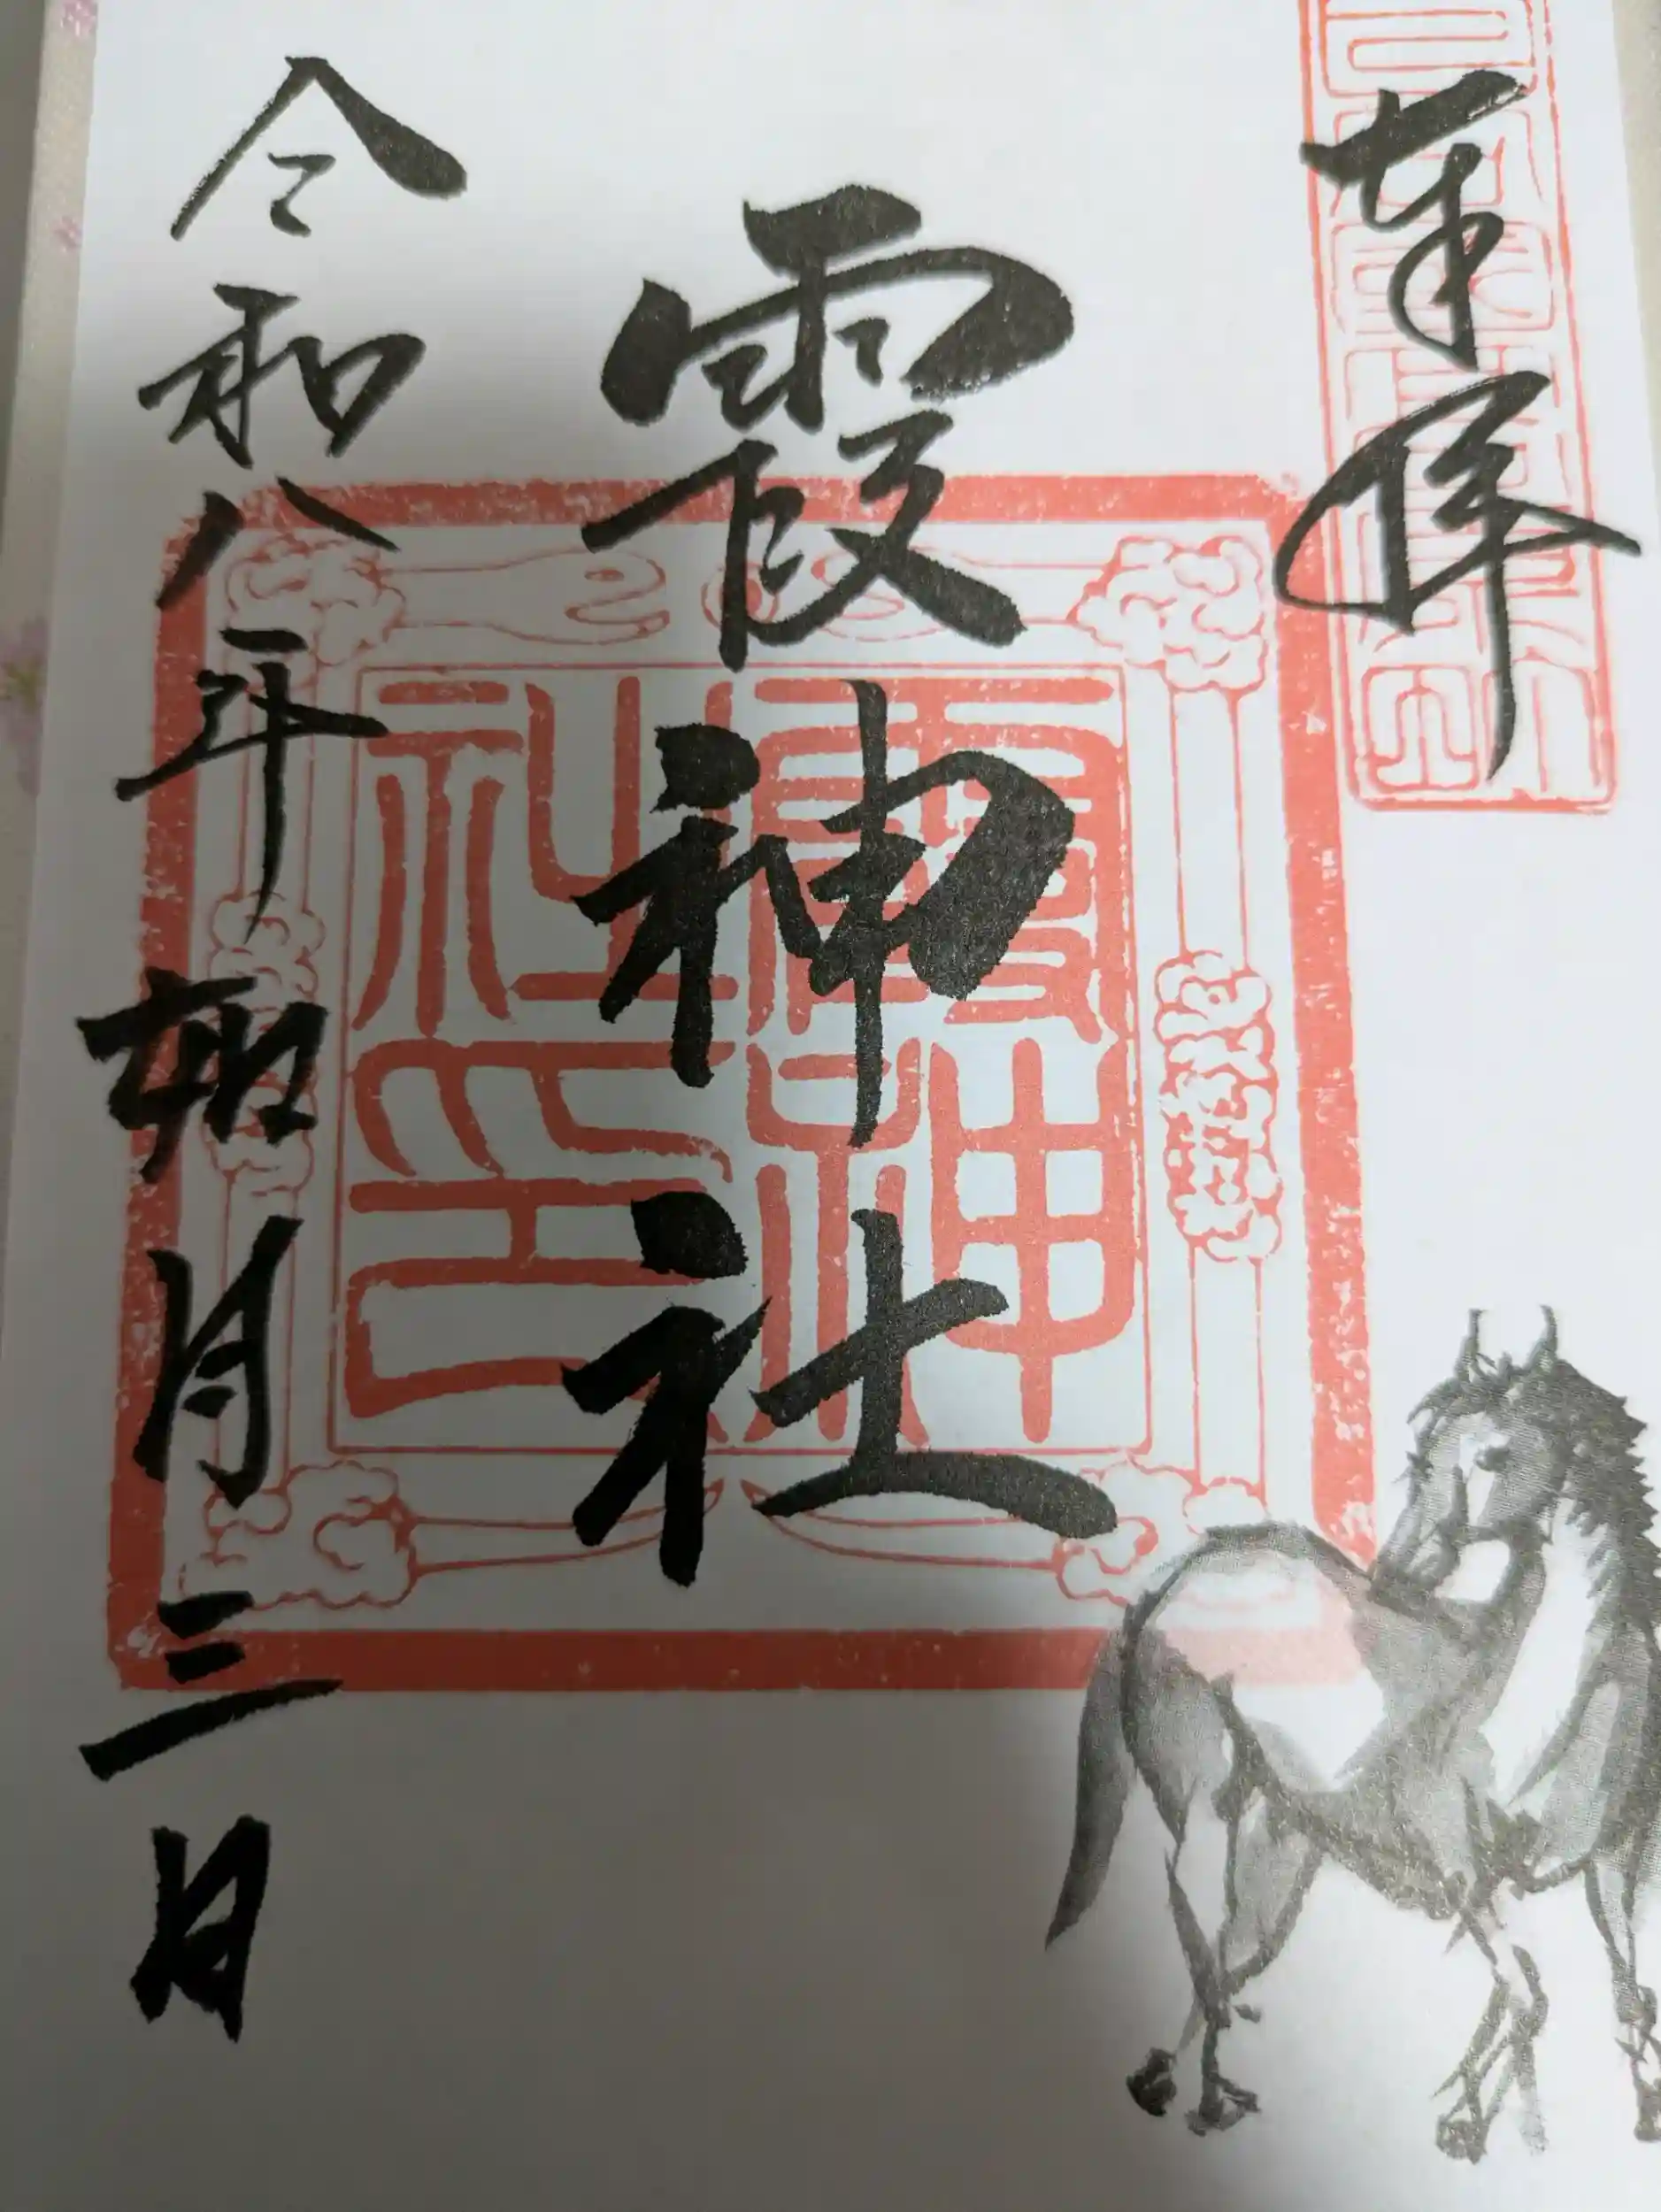 奉拝
霞神社
霞神
社印
令和八年 月三日